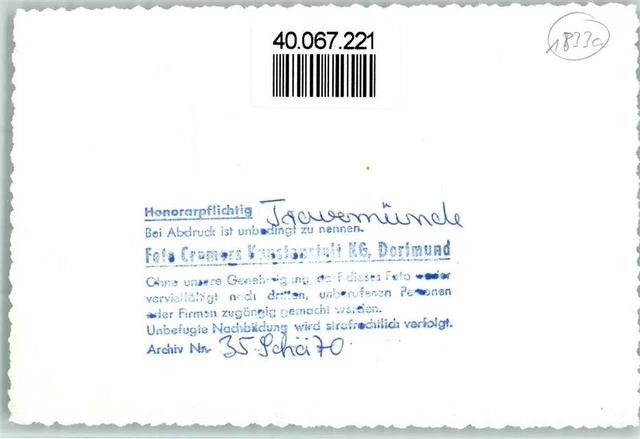 40.067.221
1833a
Honorarpflichtig Travemünde
Bei Abdruck ist unbedingt zu nennen.
Foto Cramers Kunstanstalt KG, Dortmund
Ohne unsere Genehmigung darf dieses Foto weder
vervielfältigt noch dritten, unberufenen Personen
oder Firmen zugängig gemacht werden.
Unbefugte Nachbildung wird strafrechtlich verfolgt.
Archiv Nr. 35 Schö 70